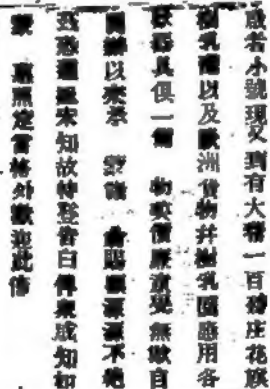 啟者小號現又到有大幫一百磅庄花旗
樹乳以及歐洲貨物并樹乳園應用各
器具俱一 物美價廉童叟無欺自
以來承 蒙 賜顧源源不絕
恐遠近未知故特登告白俾衆咸知如
蒙 惠照定當格外歡迎此佈